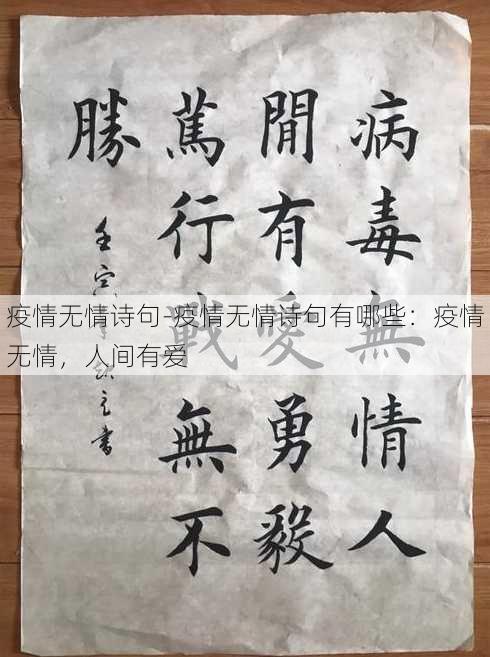 病毒無情人
間有愛勇毅
篤行戰無不
勝
疫情无情诗句-疫情无情诗句有哪些：疫情
无情，人间有爱